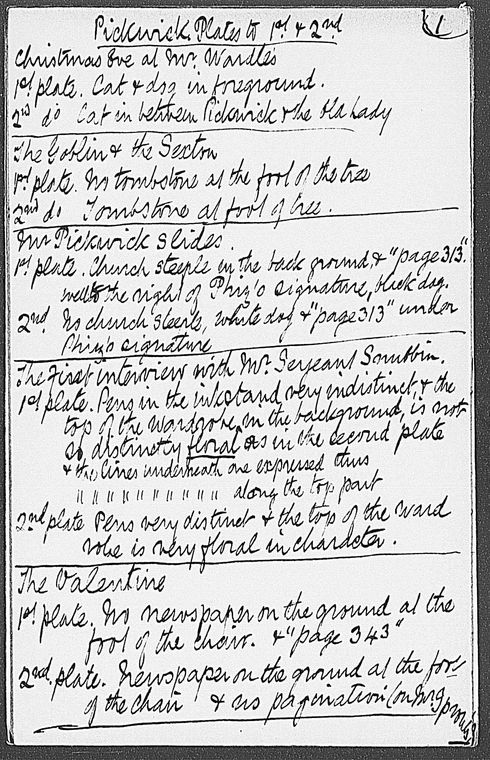 Pickwick. Plates to 1st & 2nd
1
Christmas Eve at Mr. Wardles
1st plate. Cat & dog in foreground.
2nd do Cat in between Pickwick & the old Lady
The Goblin & the Sexton
1st plate. No tombstone at the foot of the tree
2nd do Tombstone at foot of tree.
Mr Pickwick slides.
1st plate. Church steeple in the back ground, & "page 313".
well to the right of Phiz's signature, black dog.
2nd. No church steeple, white dog & "page 313" under
Phiz's signature
The first interview with Mr Serjeant Snubbin.
1st plate. Pens in the inkstand very indistinct, & the
top of the Wardrobe, in the background, is not
so distinctly floral as in the second plate
& the lines underneath are expressed thus
" " " " " " " " " " along the top part
2nd plate Pens very distinct & the top of the ward
robe is very floral in character.
The Valentine
1st plate. No newspaper on the ground at the
foot of the chair. & "page 343"
2nd. plate. Newspaper on the ground at the foot
of the chair & no pagination (on Mr